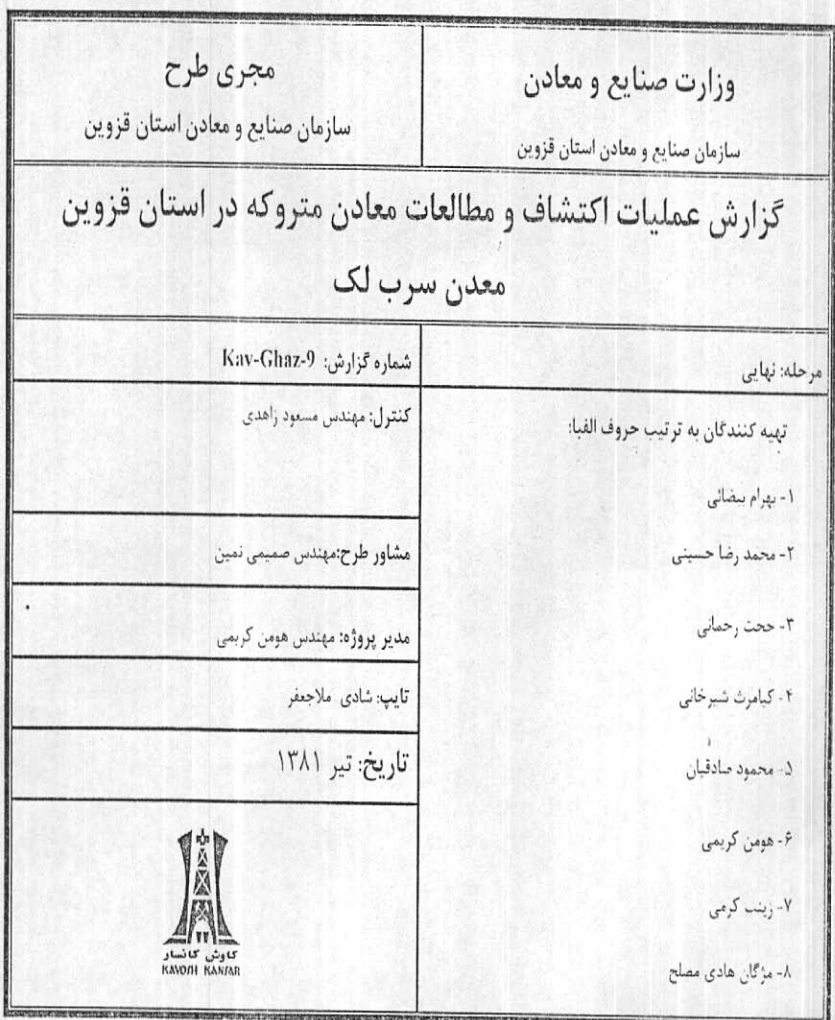 وزارت صنایع و معادن
سازمان صنایع و معادن استان قزوین
مجری طرح
سازمان صنایع و معادن استان قزوین
گزارش عملیات اکتشاف و مطالعات معادن متروکه در استان قزوین
معدن سرب لک
مرحله: نهایی
تهیه کنندگان به ترتیب حروف الفبا:
۱- بهرام بیضائی
۲- محمد رضا حسینی
۳- حجت رحمانی
۴- کیامرث شیرخانی
۵- محمود صادقیان
۶- هومن کریمی
۷- زینب کرمی
۸- مژگان هادی مصلح
شماره گزارش: Kav-Ghaz-9
کنترل: مهندس مسعود زاهدی
مشاور طرح:مهندس صمیمی نمین
مدیر پروژه: مهندس هومن کریمی
تایپ: شادی ملاجعفر
تاریخ: تیر ۱۳۸۱
کاوش کانسار
KAVOSH KANSAR